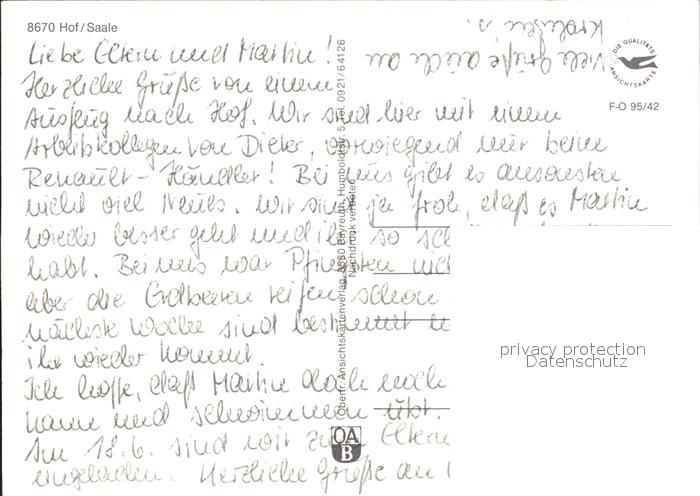 8670 Hof/Saale
Liebe Eltern und Martin!
Herzliche Grüße von einem
Ausflug nach Hof. Wir sind hier mit einem
Arbeitskollegen von Dieter, vorwiegend nur beim
Renault-Händler! Bei uns gibt es ansonsten
nicht viel Neues. Wir sind ja froh, daß es Martin
wieder besser geht und ihr so
habt. Bei uns war Pfingsten
aber die Erdbeeren reifen schon
nächste Woche sind bestimmt
ihr wieder kommt.
Ich hoffe, daß Martin doch noch
kann und schwimmen übt.
Am 18.6. sind wir zum Eltern
eingeladen. Herzliche Grüße an
Viele Grüße auch an
DIE QUALITÄTS
ANSICHTSKARTE
F-O 95/42
Oberfr. Ansichtskartenverlag, 8580 Bayreuth, Humboldtstr. 5, Tel. 0921/64126
Nachdruck verboten
OA
B
privacy protection
Datenschutz